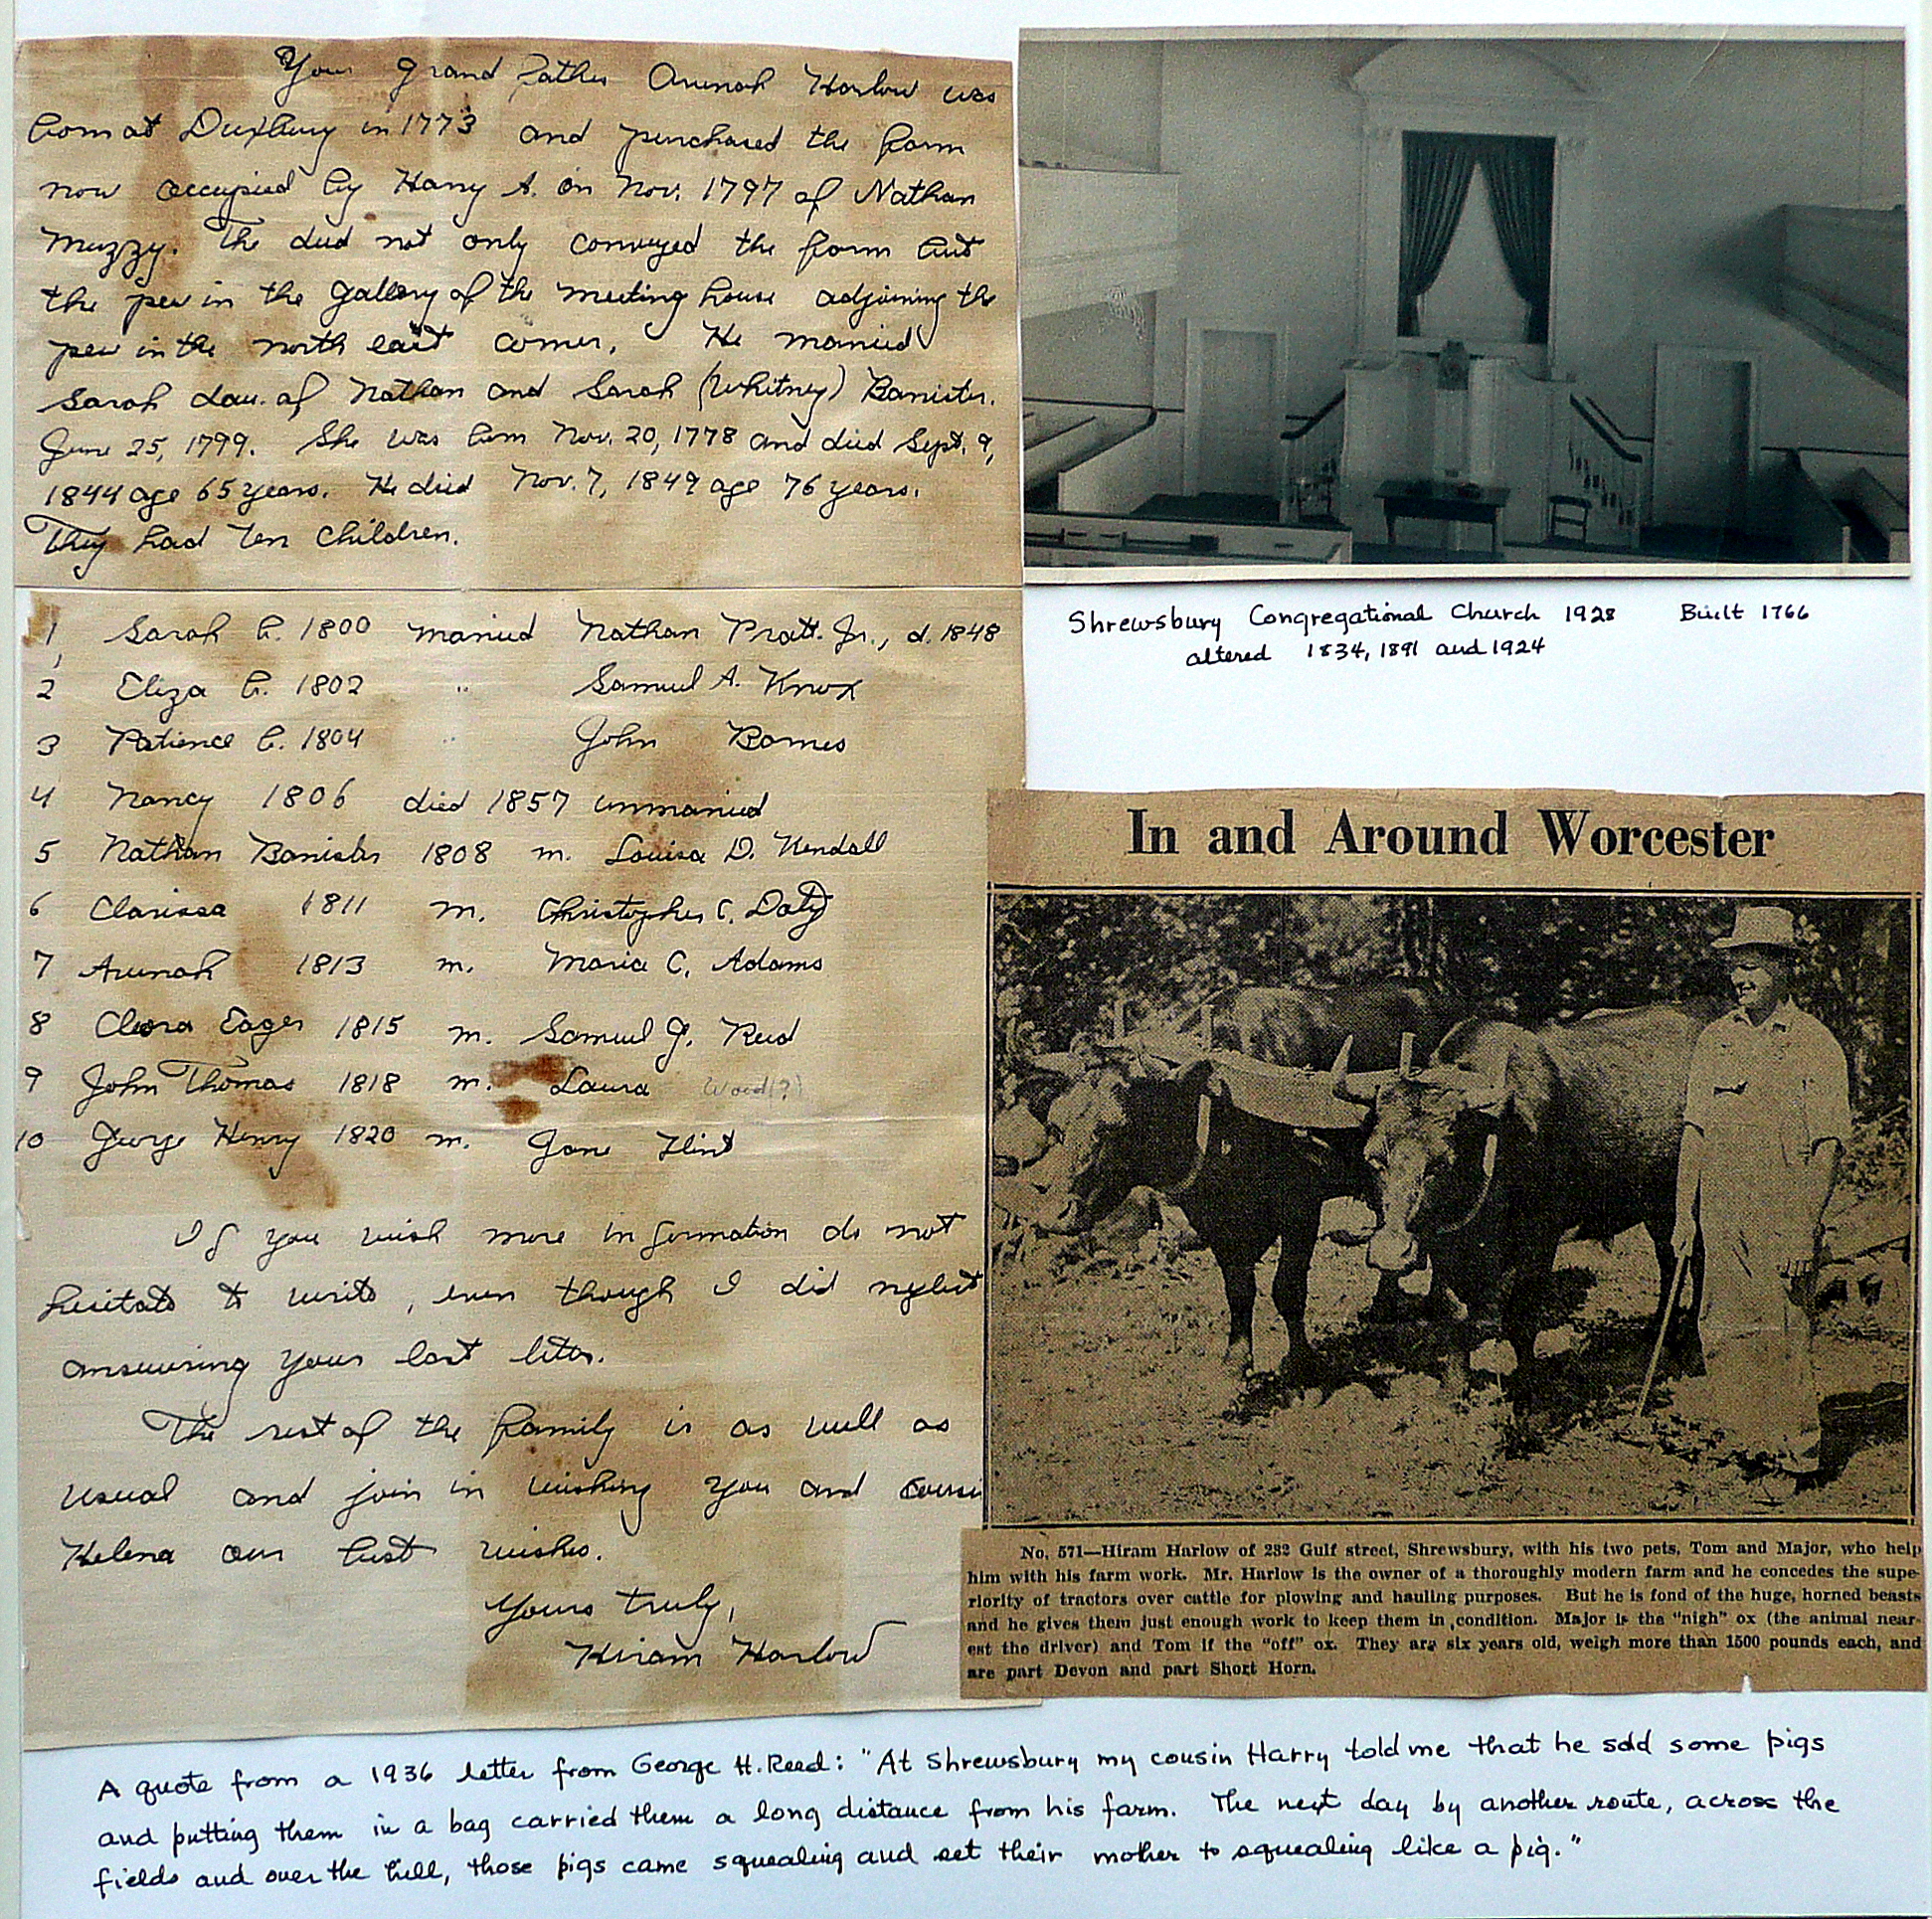 Your grand father Arunah Harlow was
born at Duxbury in 1773 and purchased the farm
now occupied by Harry A. on Nov. 1797 of Nathan
Muzzy. The deed not only conveyed the farm but
the pew in the gallery of the meeting house adjoining the
pew in the north east corner. He married
Sarah dau. of Nathan and Sarah (Whitney) Banister.
June 25, 1799. She was born Nov. 20, 1778 and died Sept. 9,
1844 age 65 years. He died Nov. 7, 1849 age 76 years.
They had ten children.
1, Sarah b. 1800 married Nathan Pratt Jr., d. 1848
2 Eliza b. 1802 " Samuel A. Knox
3 Patience b. 1804 " John Barnes
4 Nancy 1806 died 1857 unmarried
5 Nathan Banister 1808 m. Louisa D. Kendall
6 Clarissa 1811 m. Christopher C. Doty
7 Arunah 1813 m. Maria C. Adams
8 Cleora Eager 1815 m. Samuel G. Reed
9 John Thomas 1818 m. Laura Wood(?)
10 George Henry 1820 m. Jane Flint
If you wish more information do not
hesitate to write, even though I did neglect
answering your last letter.
The rest of the family is as well as
usual and join in wishing you and cousi
Helena our best wishes.
Yours truly,
Hiram Harlow
Shrewsbury Congregational Church 1928 Built 1766
altered 1834, 1891 and 1924
In and Around Worcester
No. 571—Hiram Harlow of 232 Gulf street, Shrewsbury, with his two pets, Tom and Major, who help
him with his farm work. Mr. Harlow is the owner of a thoroughly modern farm and he concedes the supe-
riority of tractors over cattle for plowing and hauling purposes. But he is fond of the huge, horned beasts
and he gives them just enough work to keep them in condition. Major is the "nigh" ox (the animal near-
est the driver) and Tom if the "off" ox. They are six years old, weigh more than 1500 pounds each, and
are part Devon and part Short Horn.
A quote from a 1936 letter from George H. Reed: "At Shrewsbury my cousin Harry told me that he sold some pigs
and putting them in a bag carried them a long distance from his farm. The next day by another route, across the
fields and over the hill, those pigs came squealing and set their mother to squealing like a pig."